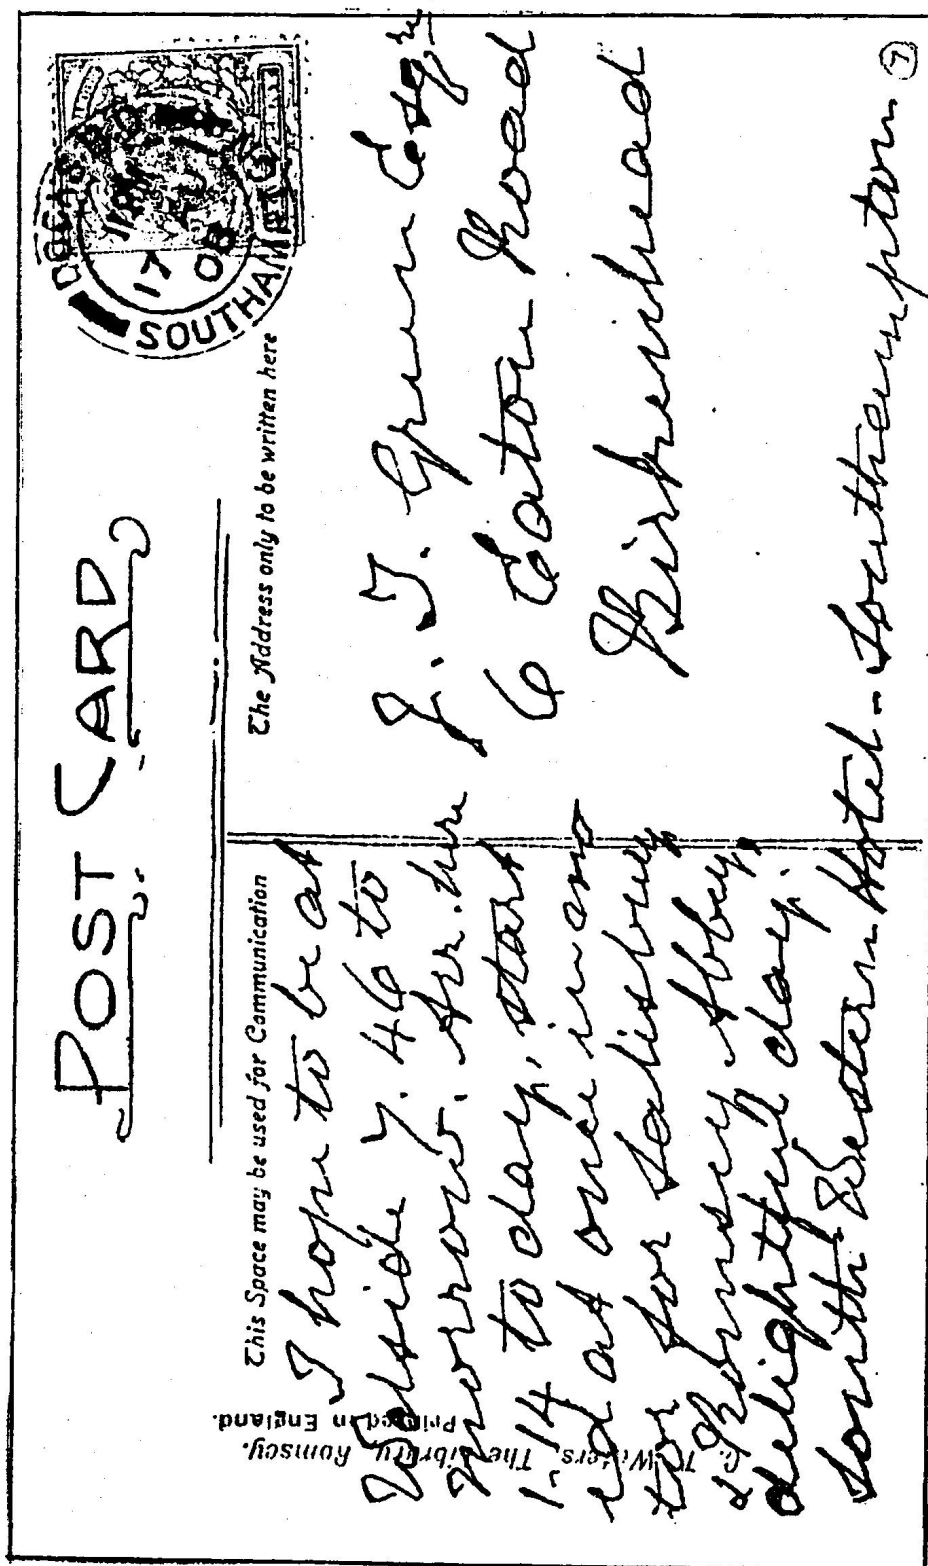 POST CARD
This Space may be used for Communication
The Address only to be written here
SOUTHAMPTON
17
08
C. T. Waters, The Library, Romsey.
Printed in England.
I hope to be at
Woodside 7.46 to
morrow. Arr. here
1-14 to day, start
ed at once in mo
tor for Salisbury
& Romsey Abbey,
delightful day.
South Western Hotel - Southampton
J. T. Green Esqre
6 Eaton Road
Birkenhead
7